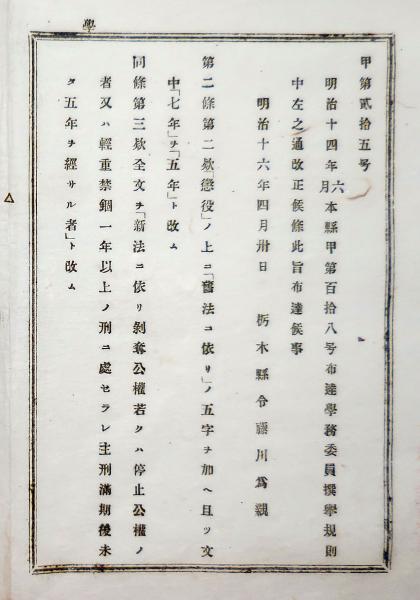 學
甲第貳拾五号
明治十四年六月本縣甲第百拾八号布達學務委員撰擧規則
中左之通改正候條此旨布達候事
明治十六年四月卅日　栃木縣令藤川爲親
第二條第二欵「懲役」ノ上ニ「舊法ニ依リ」ノ五字ヲ加ヘ且ツ文
中「七年」ヲ「五年」ト改ム
同條第三欵全文ヲ「新法ニ依リ剝奪公權若クハ停止公權ノ
者又ハ輕重禁錮一年以上ノ刑ニ處セラレ主刑滿期後未
タ五年ヲ經サル者」ト改ム